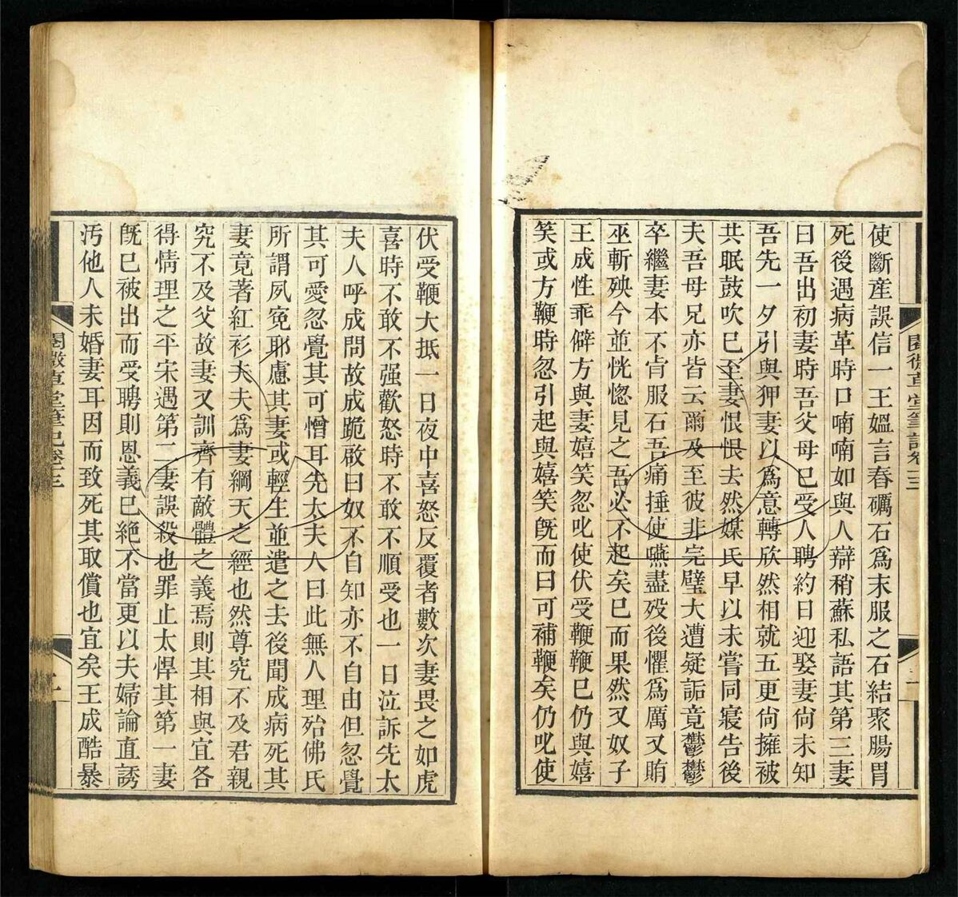 使斷産誤信一王媼言舂礪石爲末服之石結聚腸胃
死後遇病革時口喃喃如與人辯稍蘇私語其第三妻
曰吾出初妻時吾父母已受人聘約日迎娶妻尙未知
吾先一夕引與狎妻以爲意轉欣然相就五更尙擁被
共眠鼓吹已至妻恨恨去然媒氏早以未嘗同寢告後
夫吾母兄亦皆云爾及至彼非完璧大遭疑詬竟鬱鬱
卒繼妻本不肯服石吾痛捶使嚥盡歿後懼爲厲又賄
巫斬殃今並恍惚見之吾必不起矣已而果然又奴子
王成性乖僻方與妻嬉笑忽叱使伏受鞭鞭已仍與嬉
笑或方鞭時忽引起與嬉笑旣而曰可補鞭矣仍叱使
閱微草堂筆記卷三
伏受鞭大抵一日夜中喜怒反覆者數次妻畏之如虎
喜時不敢不强歡怒時不敢不順受也一日泣訴先太
夫人呼成問故成跪啟曰奴不自知亦不自由但忽覺
其可愛忽覺其可憎耳先太夫人曰此無人理殆佛氏
所謂夙寃耶慮其妻或輕生並遣之去後聞成病死其
妻竟著紅衫夫夫爲妻綱天之經也然尊究不及君親
究不及父故妻又訓齊有敵體之義焉則其相與宜各
得情理之平宋遇第二妻誤殺也罪止太悍其第一妻
旣已被出而受聘則恩義已絕不當更以夫婦論直誘
汚他人未婚妻耳因而致死其取償也宜矣王成酷暴
閱微草堂筆記卷三